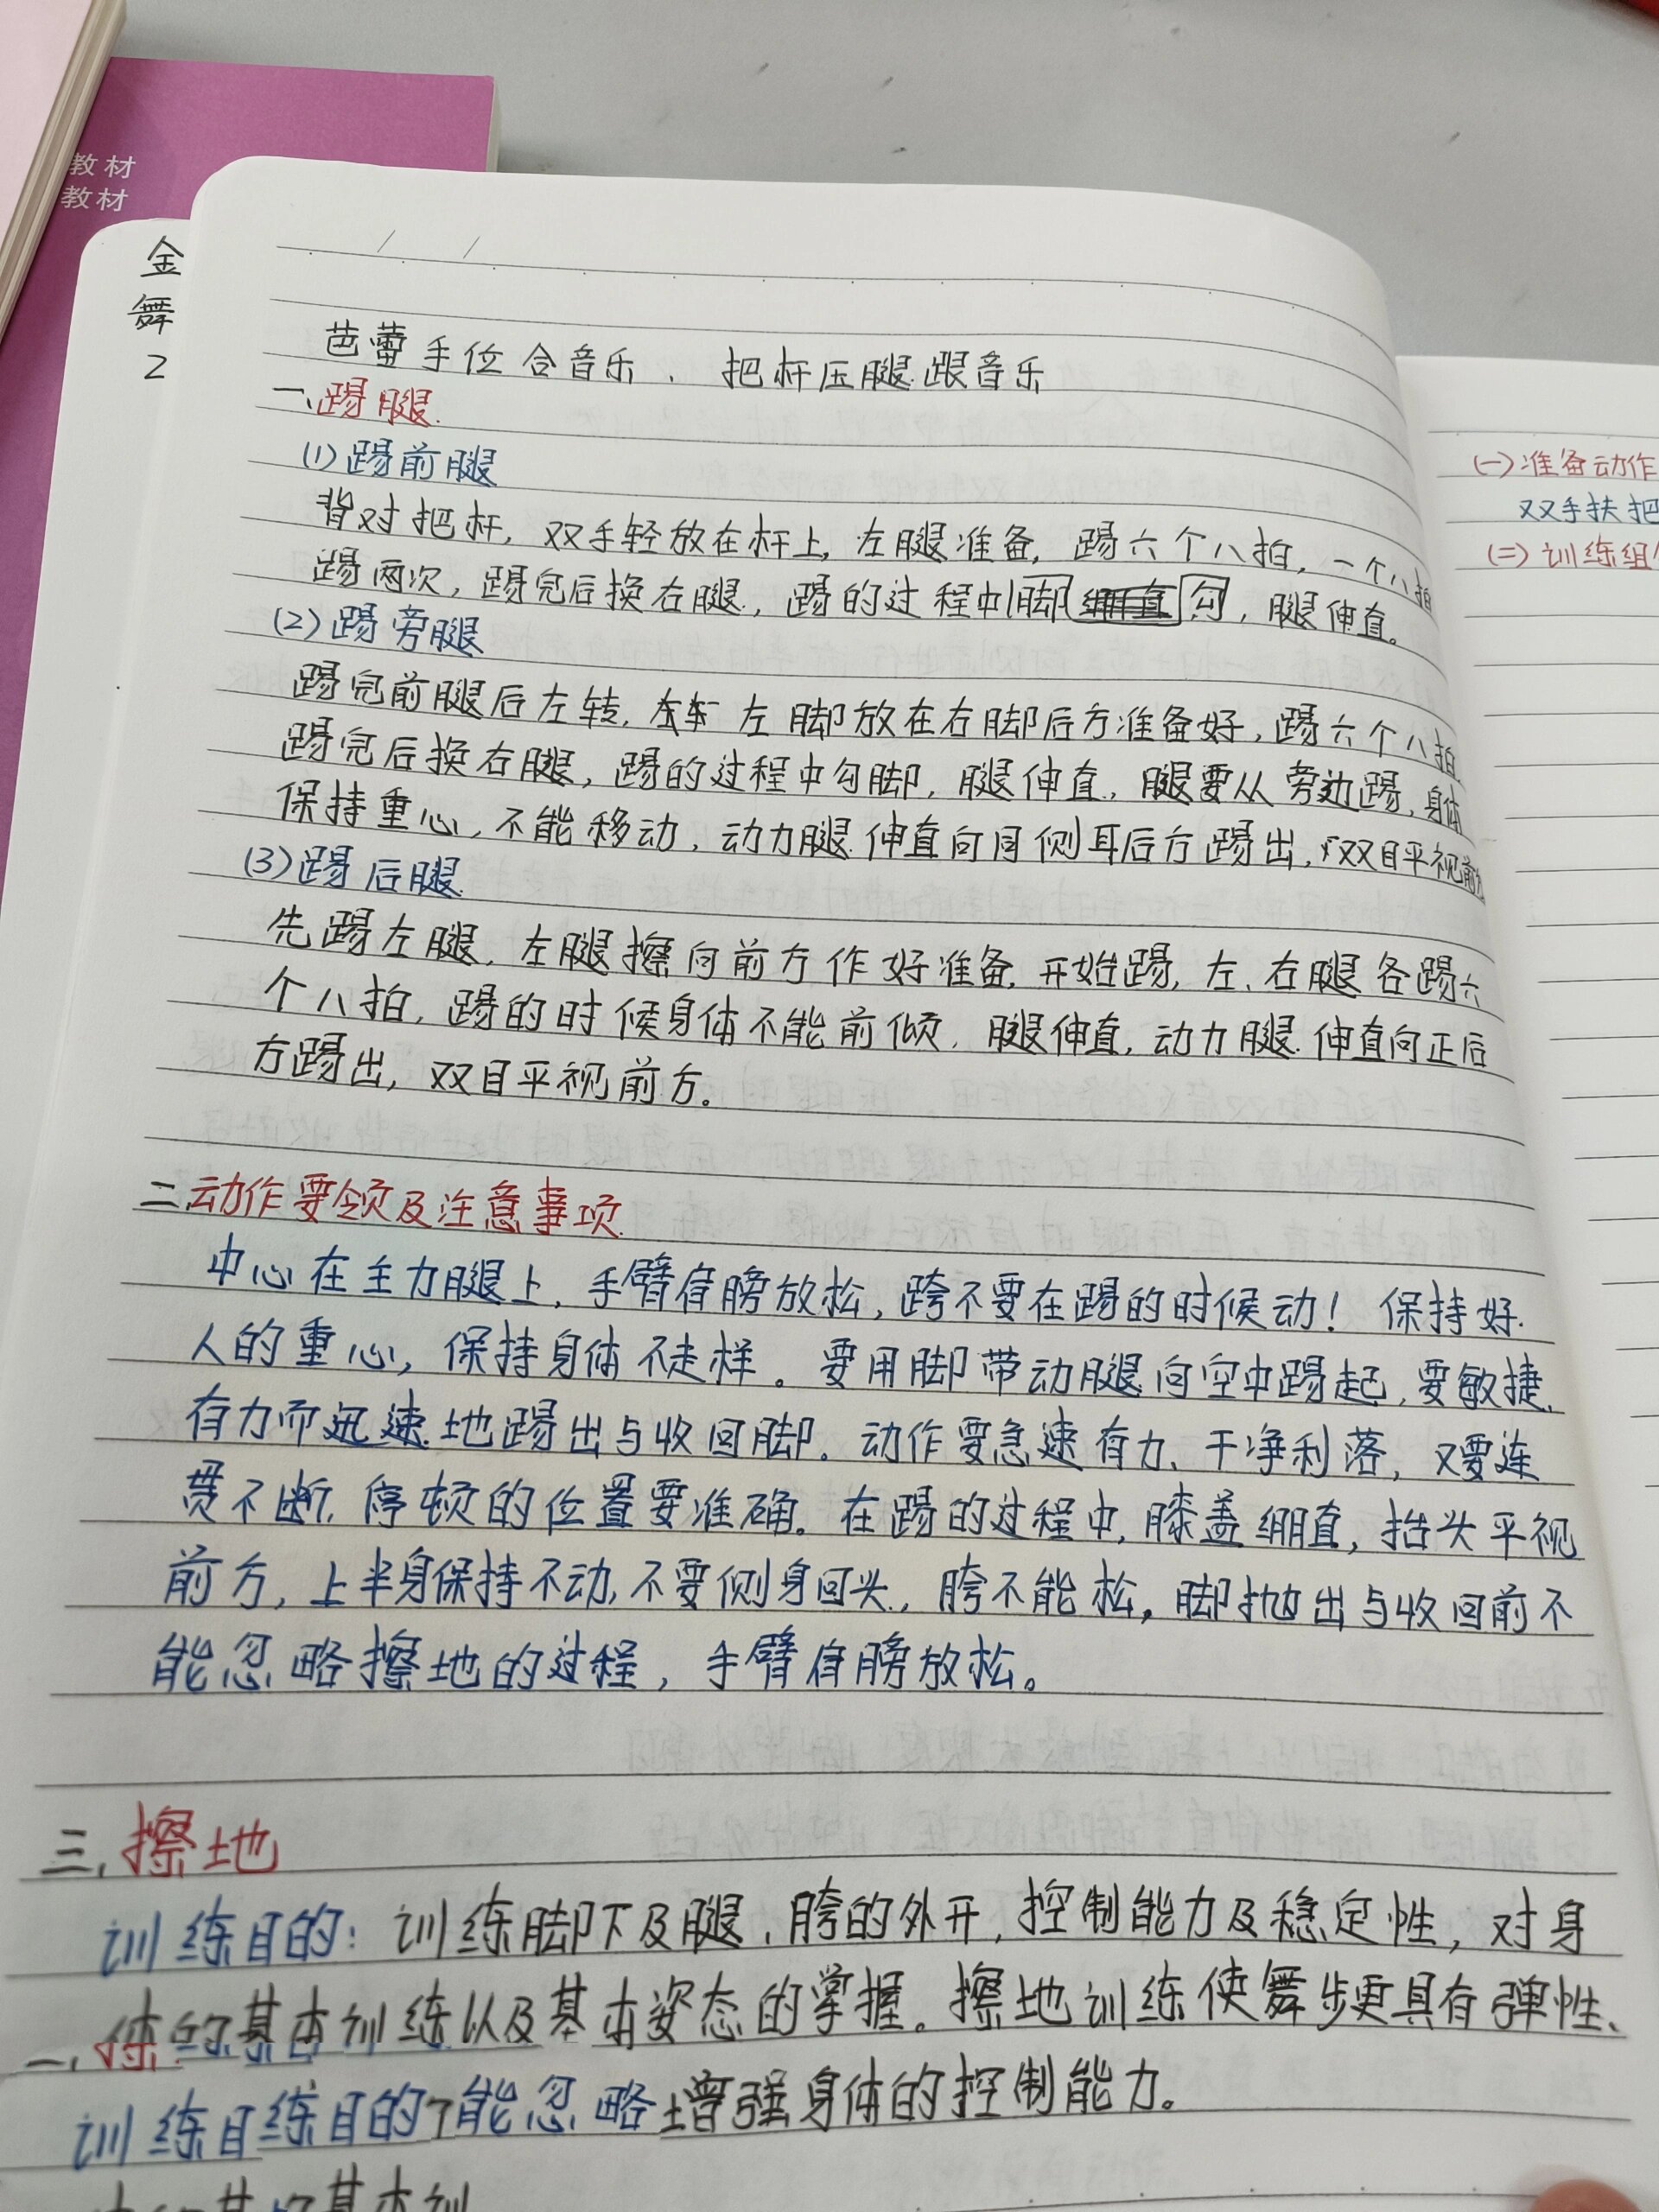 教材
教材
金
舞
2
芭蕾手位合音乐、把杆压腿跟音乐
一、踢腿
(1)踢前腿
背对把杆,双手轻放在杆上,左腿准备,踢六个八拍,一个八拍
踢两次,踢完后换右腿,踢的过程中脚勾,腿伸直。
(2)踢旁腿
踢完前腿后左转,左脚放在右脚后方准备好,踢六个八拍
踢完后换右腿,踢的过程中勾脚,腿伸直,腿要从旁边踢,身体
保持重心,不能移动,动力腿伸直向同侧耳后方踢出,双目平视前方
(3)踢后腿
先踢左腿,左腿擦向前方作好准备,开始踢,左、右腿各踢六
个八拍,踢的时候身体不能前倾,腿伸直,动力腿伸直向正后
方踢出,双目平视前方。
二、动作要领及注意事项
中心在主力腿上,手臂肩膀放松,跨不要在踢的时候动!保持好
人的重心,保持身体不走样。要用脚带动腿向空中踢起,要敏捷、
有力而迅速地踢出与收回脚。动作要急速有力、干净利落,又要连
贯不断,停顿的位置要准确。在踢的过程中,膝盖绷直,抬头平视
前方,上半身保持不动,不要侧身回头,胯不能松,脚抛出与收回前不
能忽略擦地的过程,手臂肩膀放松。
三、擦地
训练目的:训练脚下及腿、胯的外开,控制能力及稳定性,对身
体的基本训练以及基本姿态的掌握。擦地训练使舞步更具有弹性、
训练目练目的了能忽略增强身体的控制能力。
(一)准备动作
双手扶把
(二)训练组